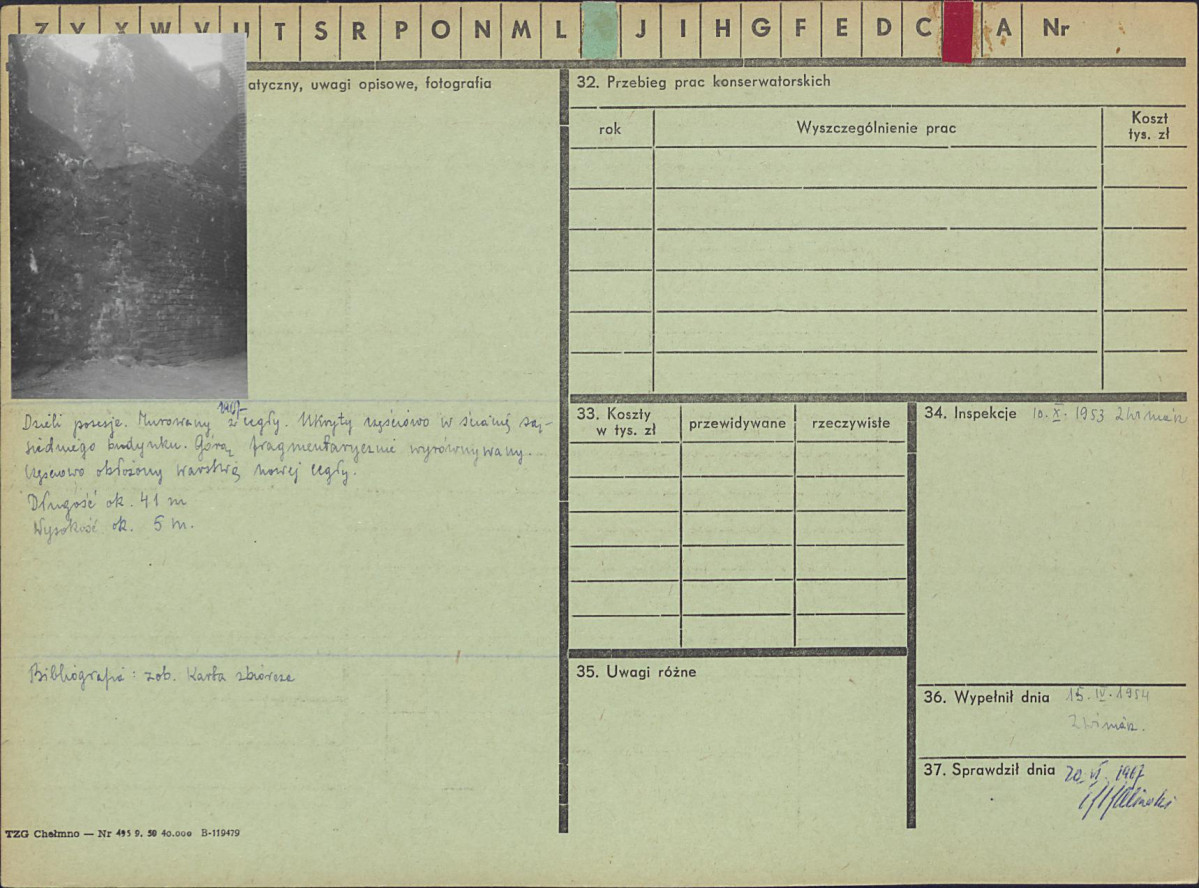 Z Y X W V U T S R P O N M L J I H G F E D C A Nr
atyczny, uwagi opisowe, fotografia
1967
Dzieli posesje. Murowany z cegły. Ukryty częściowo w ścianie są-
siedniego budynku. Górą fragmentarycznie wyrównywany.
Częściowo obłożony warstwą nowej cegły.
Długość ok. 41 m
Wysokość ok. 5 m.
Bibliografia: zob. Karta zbiorcza
TZG Chełmno — Nr 495 9. 50 40.000 B-119479
32. Przebieg prac konserwatorskich
rok Wyszczególnienie prac Koszt
tys. zł
33. Koszty
w tys. zł przewidywane rzeczywiste
34. Inspekcje 10. X. 1953
35. Uwagi różne
36. Wypełnił dnia 15. IV. 1954
37. Sprawdził dnia 20. VI. 1967